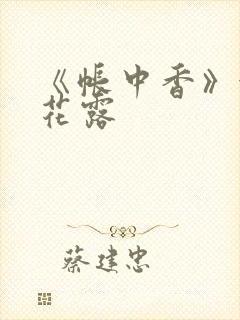 《帐中香》
花露
蔡建忠